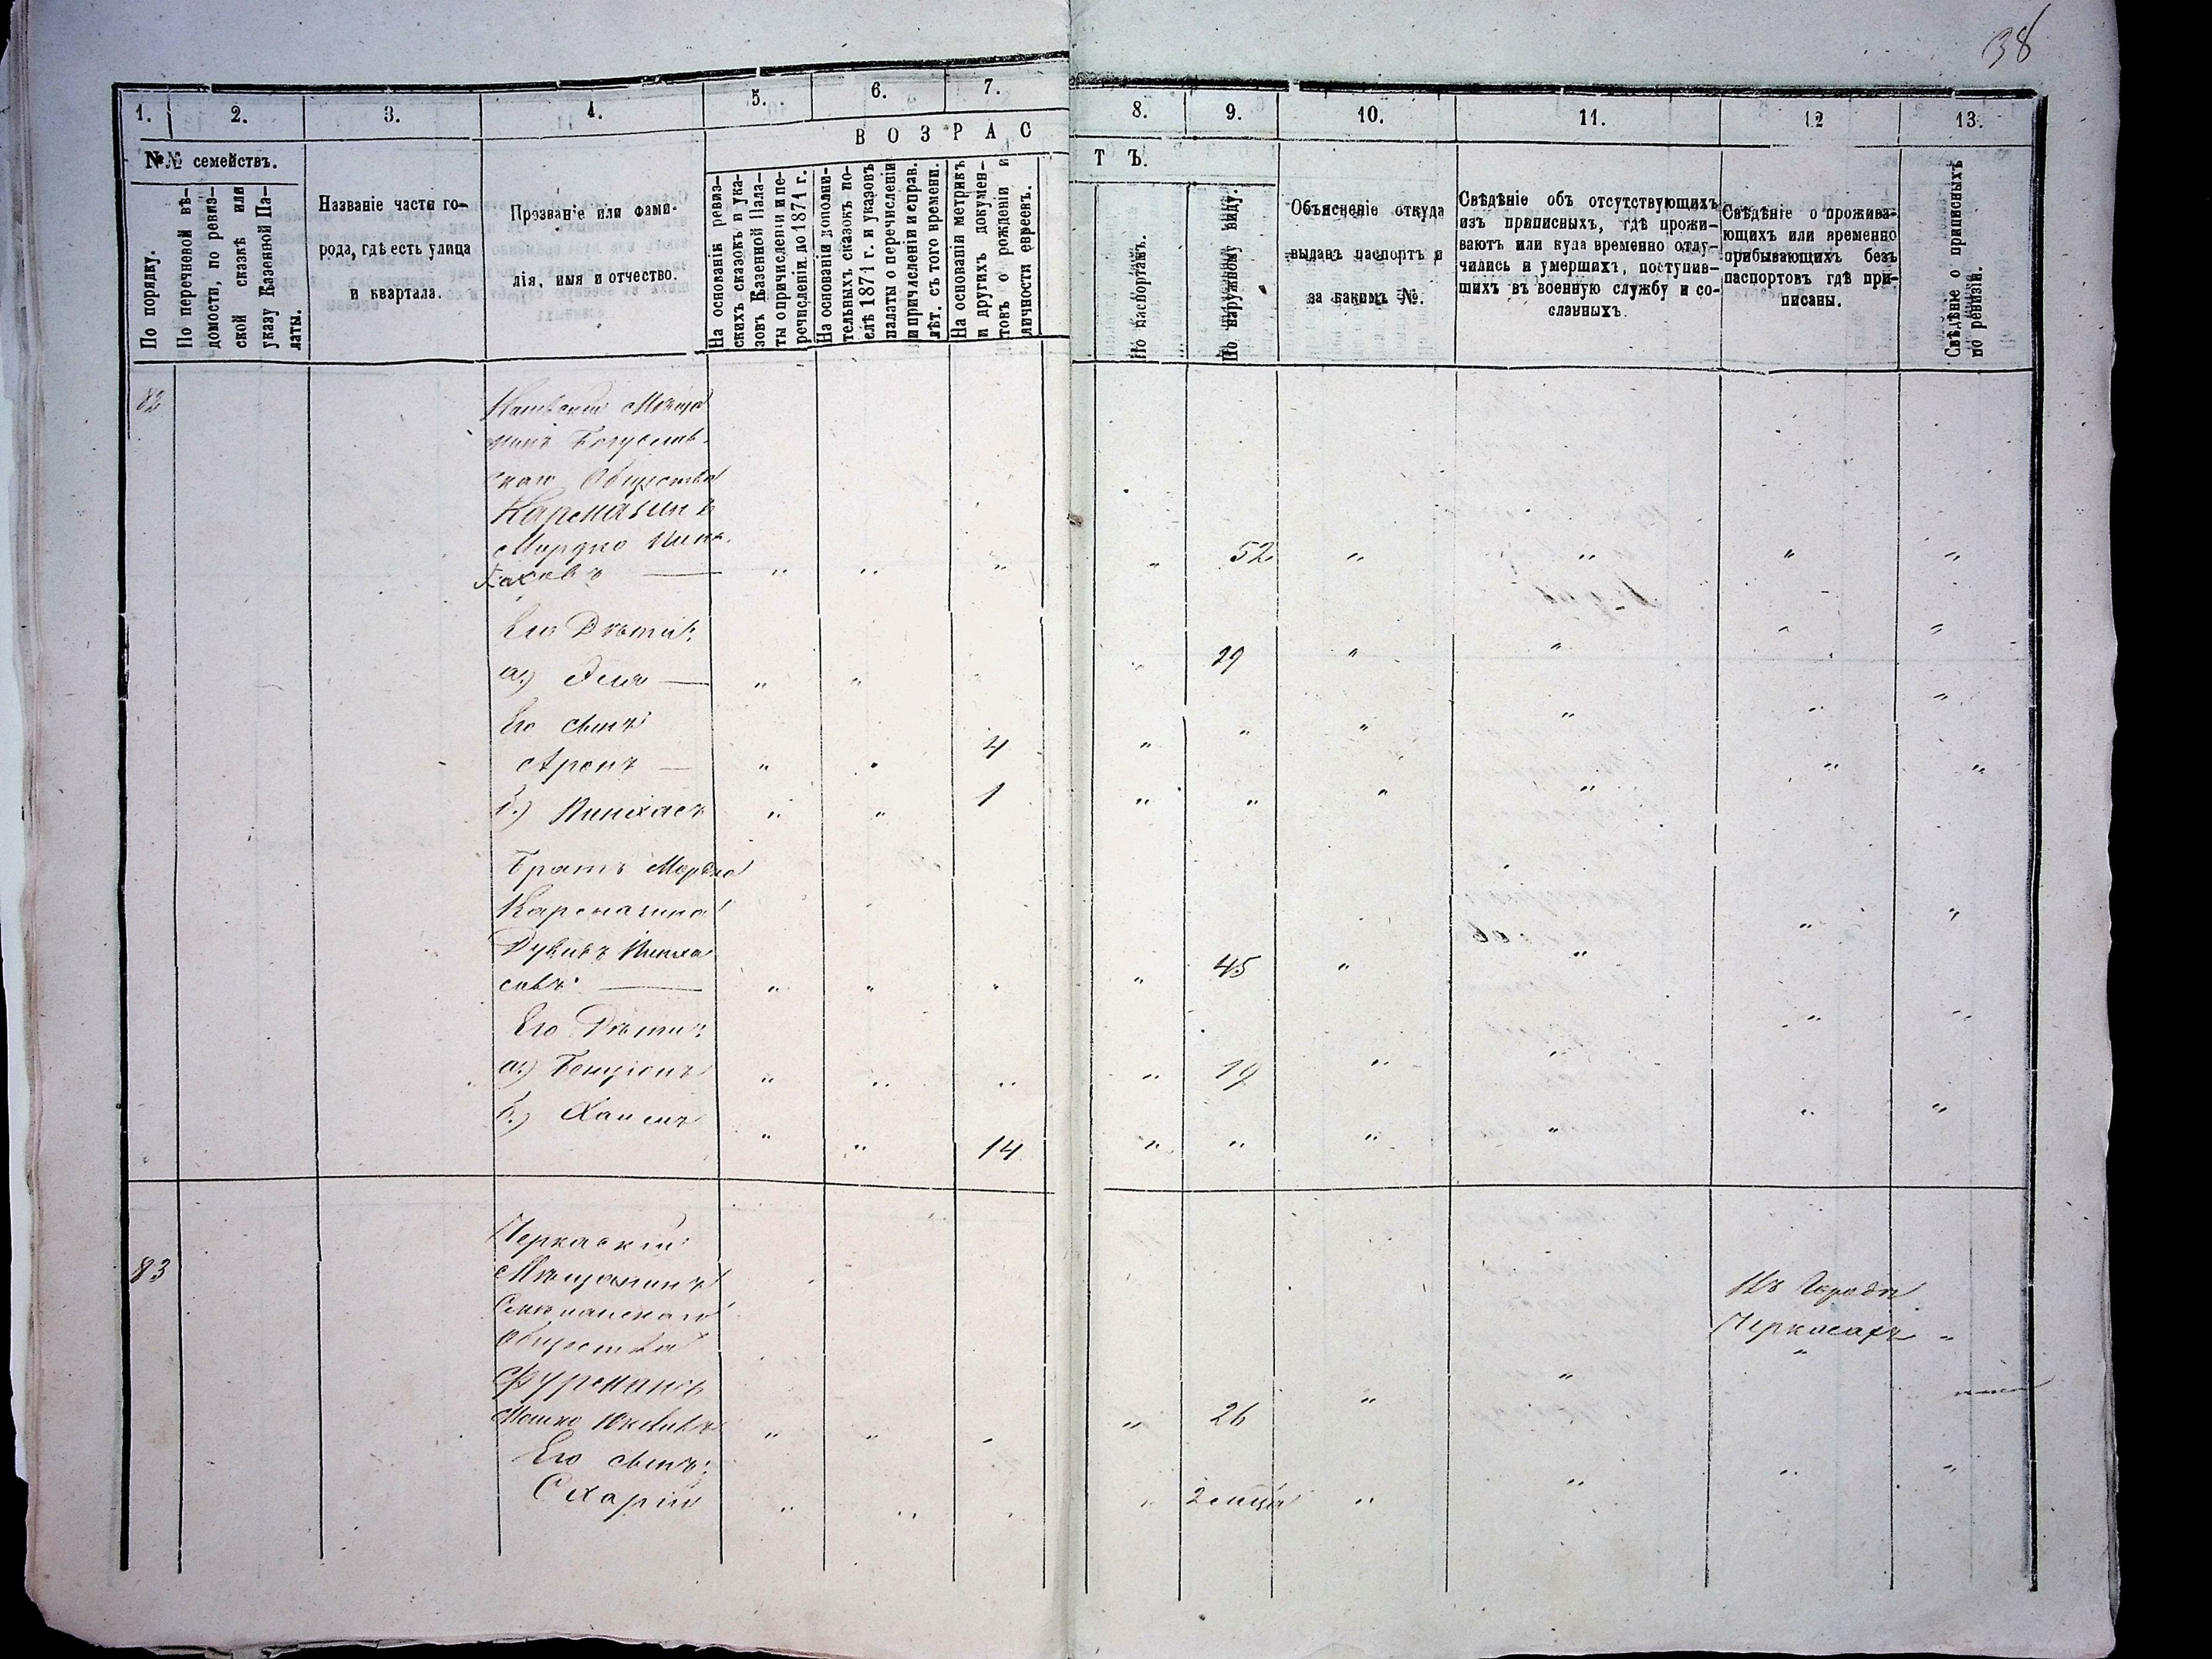 38
1. 2. 3. 4. 5. 6. 7. 8. 9. 10. 11. 12 13.
№№ семействъ.
По порядку.
По перечневой вѣ-
домости, по ревиз-
ской сказкѣ или
указу Казенной Па-
латы.
Названіе части го-
рода, гдѣ есть улица
и квартала.
Прозваніе или фами-
лія, имя и отчество.
ВОЗРАСТЪ.
На основаніи ревиз-
скихъ сказокъ и ука-
зовъ Казенной Пала-
ты о причисленіи и пе-
речисленіи до 1871 г.
На основаніи дополни-
тельныхъ сказокъ по-
слѣ 1871 г. и указовъ
палаты о перечисленіи
и причисленіи и справ.
лѣт. съ того времени.
На основаніи метрикъ
и другихъ докумен-
товъ о рожденіи и
личности евреевъ.
По паспортамъ.
По наружному виду.
Объясненіе откуда
выданъ паспортъ и
за какимъ №.
Свѣдѣніе объ отсутствующихъ
изъ приписныхъ, гдѣ прожи-
ваютъ или куда временно отлу-
чились и умершихъ, поступив-
шихъ въ военную службу и со-
сланныхъ.
Свѣдѣніе о прожива-
ющихъ или временно
прибывающихъ безъ
паспортовъ гдѣ при-
писаны.
Свѣдѣніе о приписныхъ
по ревизіи.
82
Каневскій Мѣща
нинъ Богуслав-
скаго Общества
Кармазинъ
Мордко Пин-
хасовъ — " " " " 52 " " " "
Его Дѣти:
а.) Элья — " " " " 29 " " " "
Его сынъ
Аронъ — " " 4 " " " " " "
б.) Пинхасъ " " 1 " " " " " "
Братъ Мордка
Кармазина
Дувидъ Пинха
совъ — " " " " 45 " " " "
Его Дѣти:
а.) Бенціонъ " " " " 19 " " " "
б.) Хаимъ " " 14 " " " " " "
83
Черкаскій
Мѣщанинъ
Смѣлянскаго
Общества
Фурманъ
Мошко " " " " 26 " "
Въ Городѣ
Черкасахъ "
Его сынъ:
Схарій " " " " 2 мѣсяца " " " "